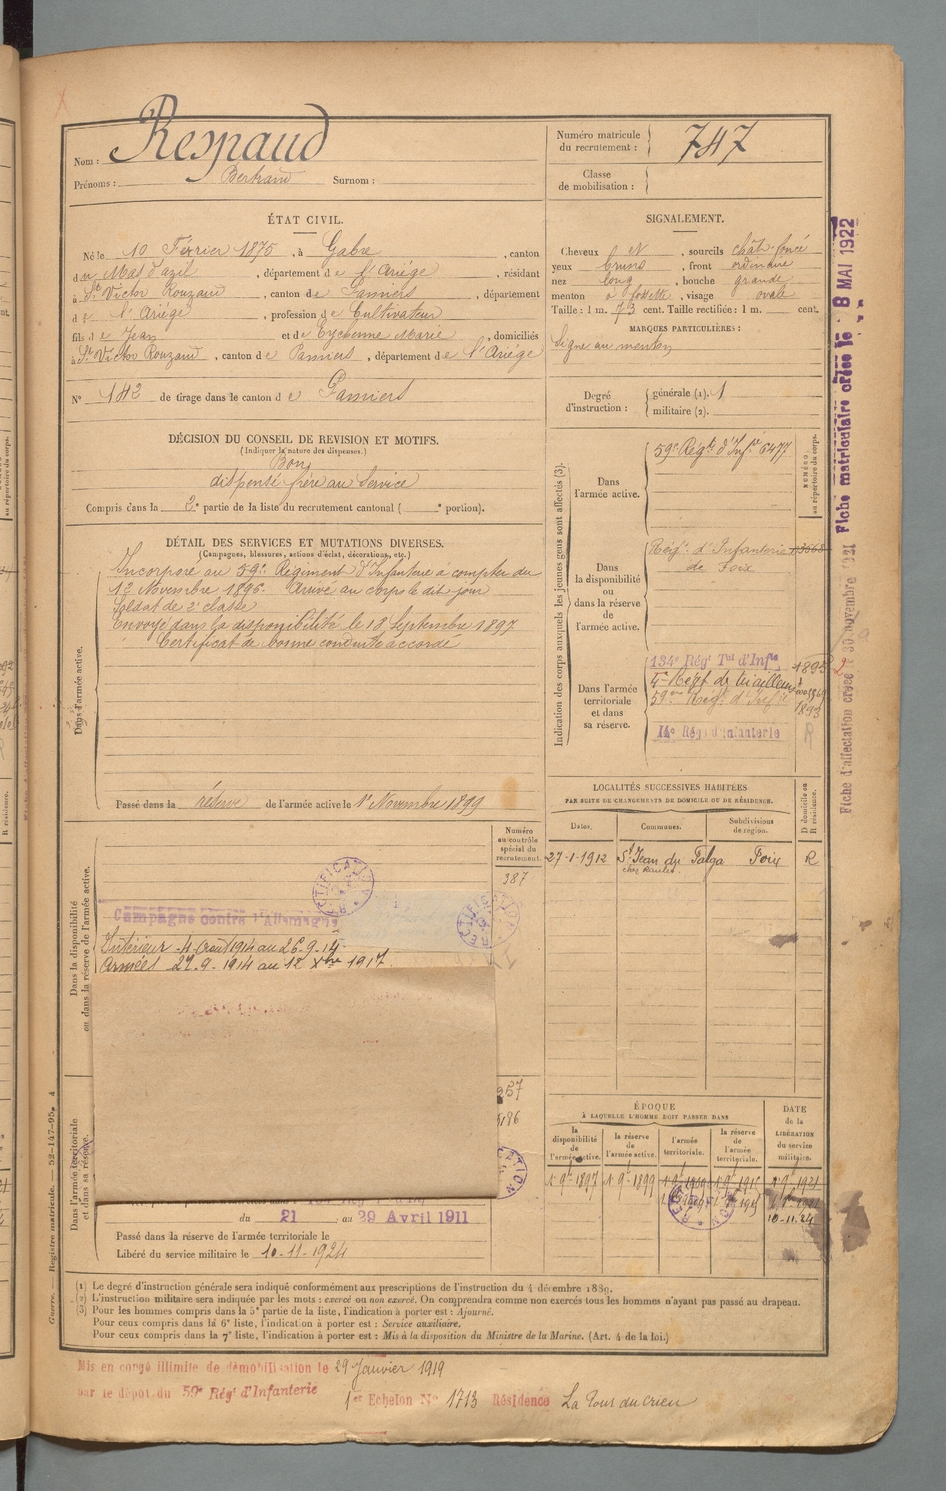 Nom : Respaud
Prénoms : Bertrand Surnom :
Numéro matricule du recrutement : 747
Classe de mobilisation :
ÉTAT CIVIL.
Né le 10 Février 1875, à Gabre, canton
du Mas d'azil, département de l'Ariége, résidant
à St Victor Rouzaud, canton de Pamiers, département
de l'Ariége, profession de Cultivateur
fils de Jean et de Eychenne Marie, domiciliés
à St Victor Rouzaud, canton de Pamiers, département de l'Ariége
N° 142 de tirage dans le canton de Pamiers
SIGNALEMENT.
Cheveux et N, sourcils chât. foncé
yeux bruns, front ordinaire
nez long, bouche grande
menton à fossette, visage ovale
Taille : 1 m. 73 cent. Taille rectifiée : 1 m. cent.
MARQUES PARTICULIÈRES :
Signe au menton
Degré d'instruction : générale (1). 1
militaire (2).
DÉCISION DU CONSEIL DE REVISION ET MOTIFS.
(Indiquer la nature des dispenses.)
Bon
dispensé frère au Service
Compris dans la 2e partie de la liste du recrutement cantonal ( e portion).
DÉTAIL DES SERVICES ET MUTATIONS DIVERSES.
(Campagnes, blessures, actions d'éclat, décorations, etc.)
Dans l'armée active.
Incorporé au 59e Régiment d'Infanterie à compter du
12 Novembre 1896. Arrivé au corps le dit jour
Soldat de 2e classe
Envoyé dans la disponibilité le 18 Septembre 1897
Certificat de bonne conduite accordé
Passé dans la réserve de l'armée active le 1er Novembre 1899
Indication des corps auxquels les jeunes gens sont affectés (3).
NUMÉRO au répertoire du corps.
Dans l'armée active.
59e Régt d'Infie 6477
Dans la disponibilité ou dans la réserve de l'armée active.
Régt d'Infanterie
de Foix
Dans l'armée territoriale et dans sa réserve.
134e Régt Tal d'Infie
4e Régt de tirailleurs
59ème Régt d'Infie 1893
14e Régt d'Infanterie
LOCALITÉS SUCCESSIVES HABITÉES
PAR SUITE DE CHANGEMENTS DE DOMICILE OU DE RÉSIDENCE.
Dates. Communes. Subdivisions de région. D domicile ou R résidence.
27-1-1912 St Jean du Falga Foix R
Dans la disponibilité ou dans la réserve de l'armée active.
Numéro au contrôle spécial du recrutement.
387
RECTIFICATION
Campagne contre l'Allemagne
RECTIFICATION
Intérieur 4 Aout 1914 au 26.9.14
Armées 27.9.1914 au 12 Xbre 1917
Dans l'armée territoriale et dans sa réserve.
du 21 au 29 Avril 1911
Passé dans la réserve de l'armée territoriale le
Libéré du service militaire le 10-11-1924
ÉPOQUE
À LAQUELLE L'HOMME DOIT PASSER DANS
la disponibilité de l'armée active.
la réserve de l'armée active.
l'armée territoriale.
la réserve de l'armée territoriale.
DATE de la LIBÉRATION du service militaire.
1er 9bre 1897 1er 9bre 1899
10-11-24
(1) Le degré d'instruction générale sera indiqué conformément aux prescriptions de l'instruction du 4 décembre 1889.
(2) L'instruction militaire sera indiquée par les mots : exercé ou non exercé. On comprendra comme non exercés tous les hommes n'ayant pas passé au drapeau.
(3) Pour les hommes compris dans la 5e partie de la liste, l'indication à porter est : Ajourné.
Pour ceux compris dans la 6e liste, l'indication à porter est : Service auxiliaire.
Pour ceux compris dans la 7e liste, l'indication à porter est : Mis à la disposition du Ministre de la Marine. (Art. 4 de la loi.)
Mis en congé illimité de démobilisation le 29 Janvier 1919
par le dépôt du 59e Régt d'Infanterie
1er Echelon N° 1713 Résidence La Tour du Crieu
Guerre. — Registre matricule. — 52-147-95.
Fiche matriculaire créée le 8 MAI 1922
Fiche d'affectation créée le 30 novembre 1921